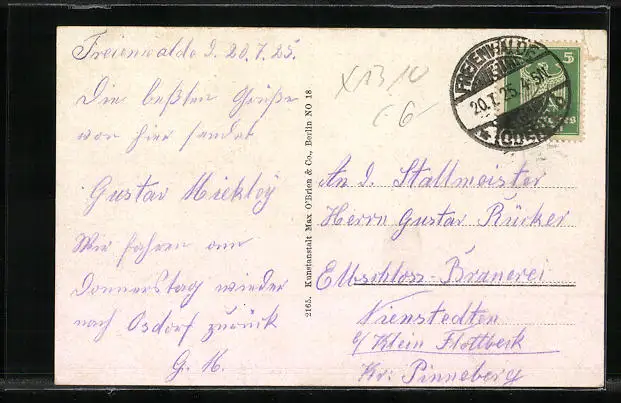 Freienwalde 2. 20.7.25.
Die beßten Grüße
von hier sendet
Gustav
Wir fahren am
Donnerstag wieder
nach Osdorf zurück
G. M.
2165. Kunstanstalt Max O'Brien & Co., Berlin NO 18
X13 10
c6
FREIENWALDE
20.7.25.4-5N
(ODER)
5
An d. Stallmeister
Herrn Gustav Rücker
Elbschloss-Brauerei
Nienstedten
b/ Klein Flottbeck
Kr: Pinneberg